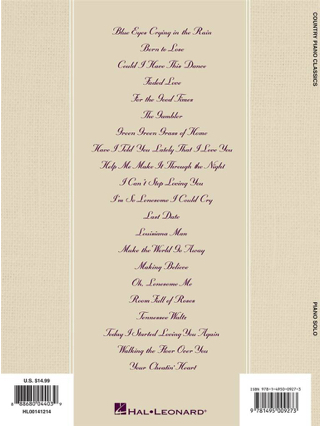 COUNTRY PIANO CLASSICS
Blue Eyes Crying in the Rain
Born to Lose
Could I Have This Dance
Faded Love
For the Good Times
The Gambler
Green Green Grass of Home
Have I Told You Lately That I Love You
Help Me Make It Through the Night
I Can't Stop Loving You
I'm So Lonesome I Could Cry
Last Date
Louisiana Man
Make the World Go Away
Making Believe
Oh, Lonesome Me
Room Full of Roses
Tennessee Waltz
Today I Started Loving You Again
Walking the Floor Over You
Your Cheatin' Heart
PIANO SOLO
U.S. $14.99
8 88680 04403 9
HL00141214
HAL•LEONARD®
ISBN 978-1-4950-0927-3
9 781495 009273